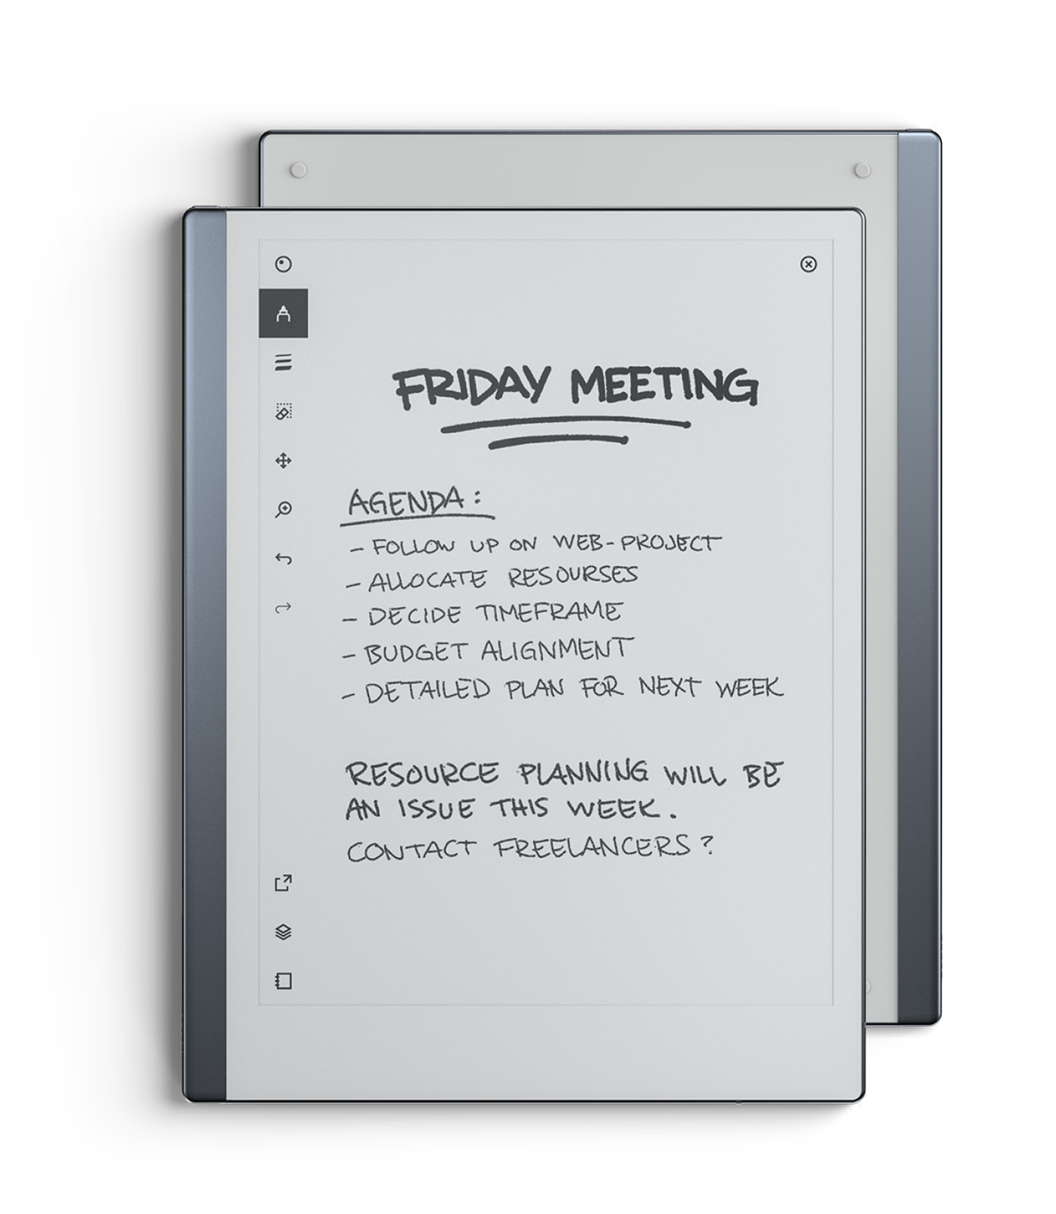 FRIDAY MEETING
AGENDA:
- FOLLOW UP ON WEB-PROJECT
- ALLOCATE RESOURSES
- DECIDE TIMEFRAME
- BUDGET ALIGNMENT
- DETAILED PLAN FOR NEXT WEEK
RESOURCE PLANNING WILL BE
AN ISSUE THIS WEEK.
CONTACT FREELANCERS?